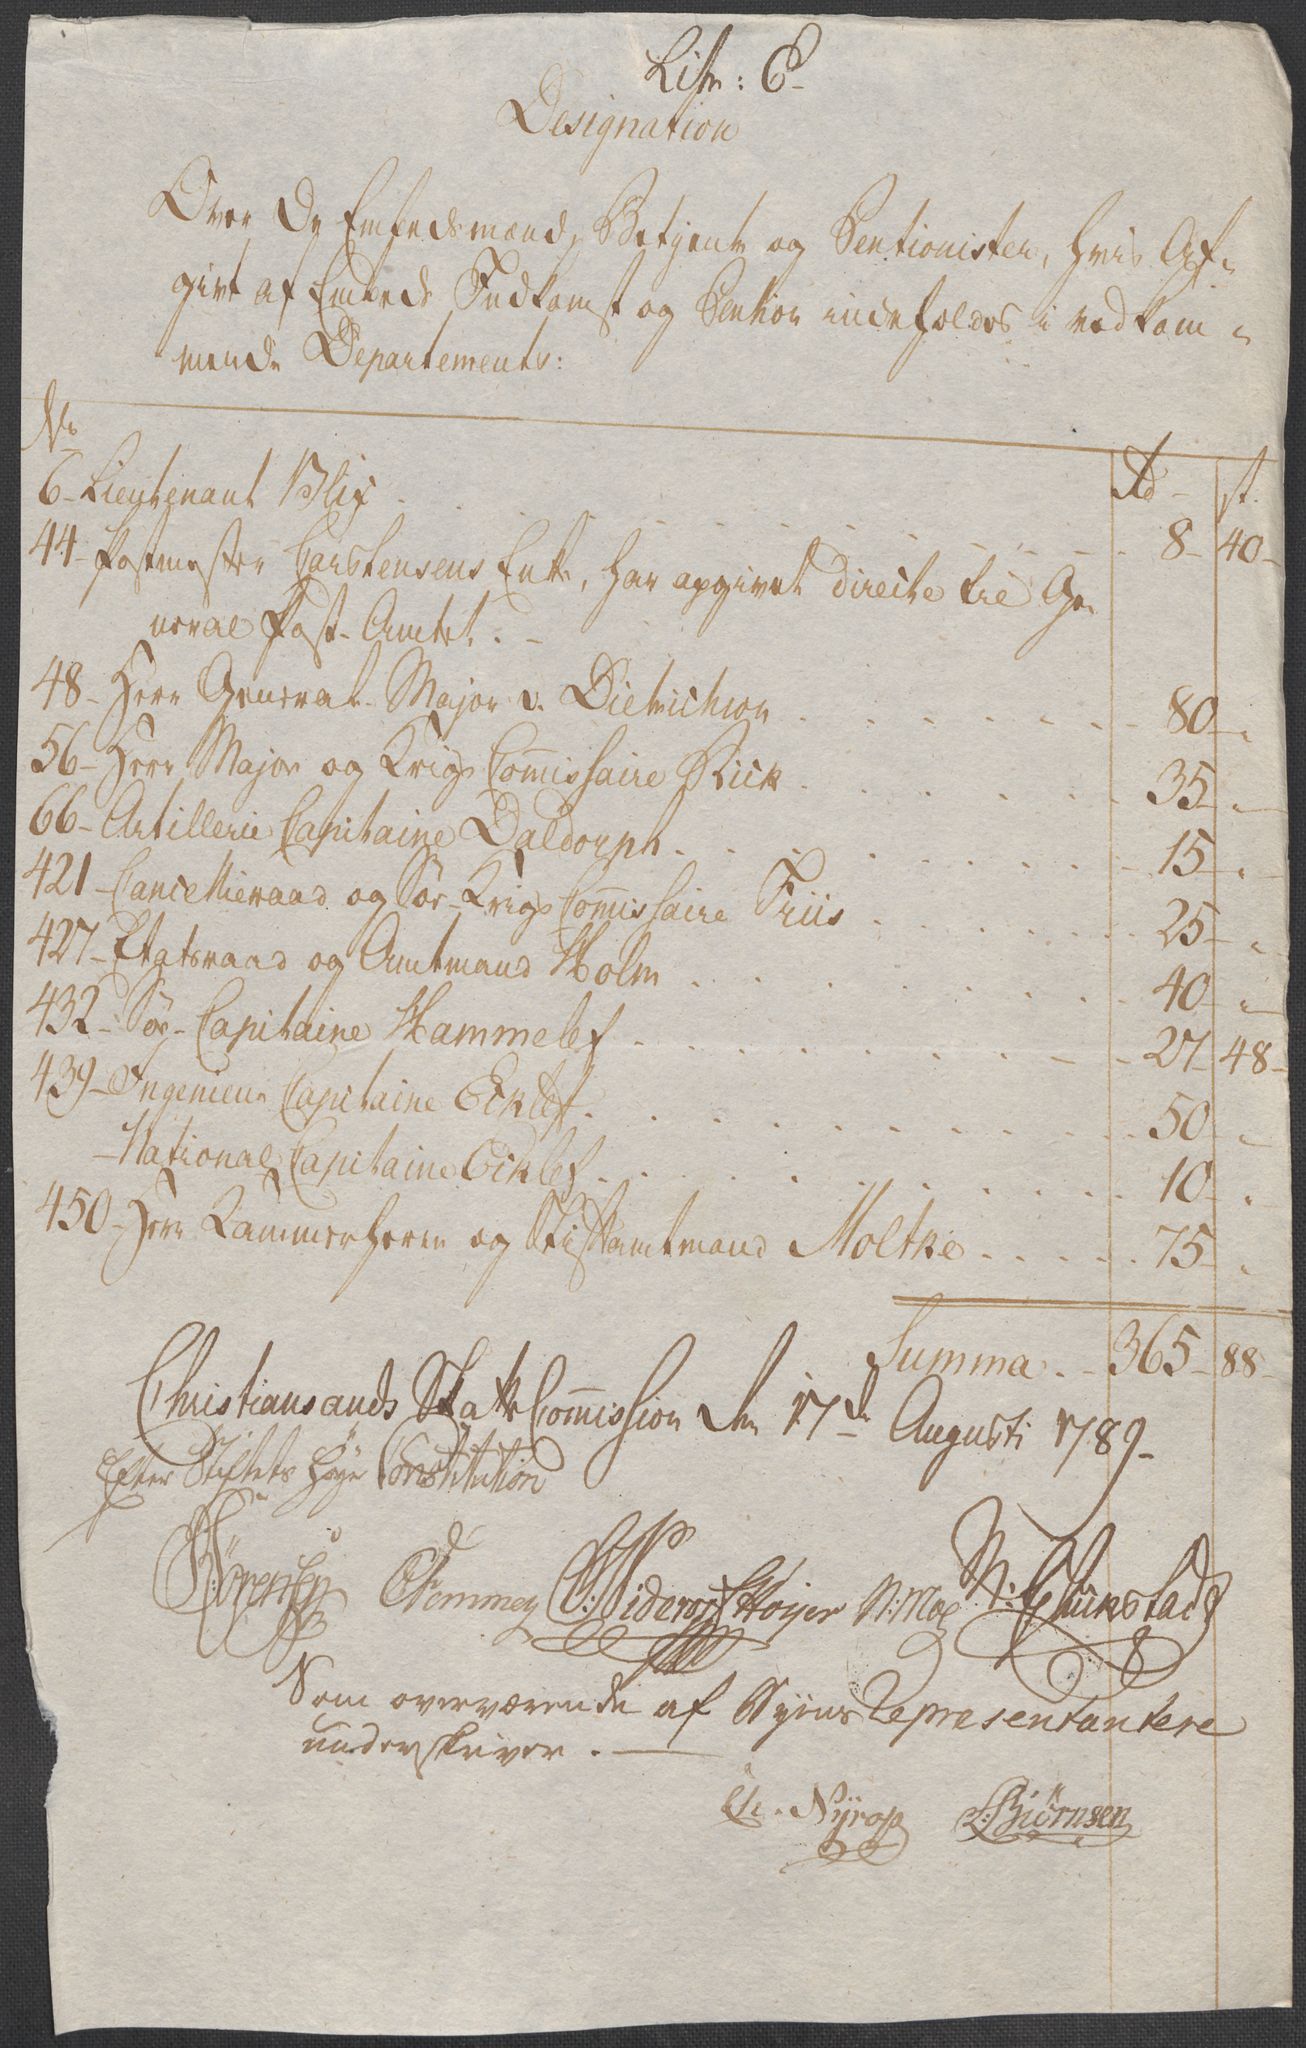 Litr: C
Designation
Over De Embedsmænd, Betjente og Pentionister, hvis Af-
givt af Embeds Indkomst og Pention indeholdes i vedkom-
mende Departements:
No
Rd st.
6 - Lieutenant Blix . . . 8 - 40 -
44 - Postmester Carstensens Enke, har afgivet directe til Ge-
neral Post-Amtet. -
48 - Herr General-Major v. Dietrichson . . . 80 - "
56 - Herr Major og Krigs Commissaire Rick . . . 35 - "
66 - Artillerie Capitaine Daldorph . . . 15 - "
421 - Cancellieraad og Sør-Krigs Commissaire Friis . . . 25 - "
427 - Etatsraad og Amtmand Holm . . . 40 - "
432 - Søe-Capitaine Hammelef . . . 27 - 48 -
439 - Ingenieur Capitaine Ecklef . . . 50 - "
- National Capitaine Eicklef . . . 10 - "
450 - Herr Kammerherre og Stiftamtmand Moltke . . . 75 - "
Summa . - 365 - 88 -
Christiansands Skatte Commission den 17de Augusti 1789 -
Efter Stiftets høye Constitution
Sørensen Clemmey Widerøe Hoyer N: Moe N: Glükstad
Som overværende af Byens Representantere
underskriver. -
Chr. Nÿrop L: Biörnsen